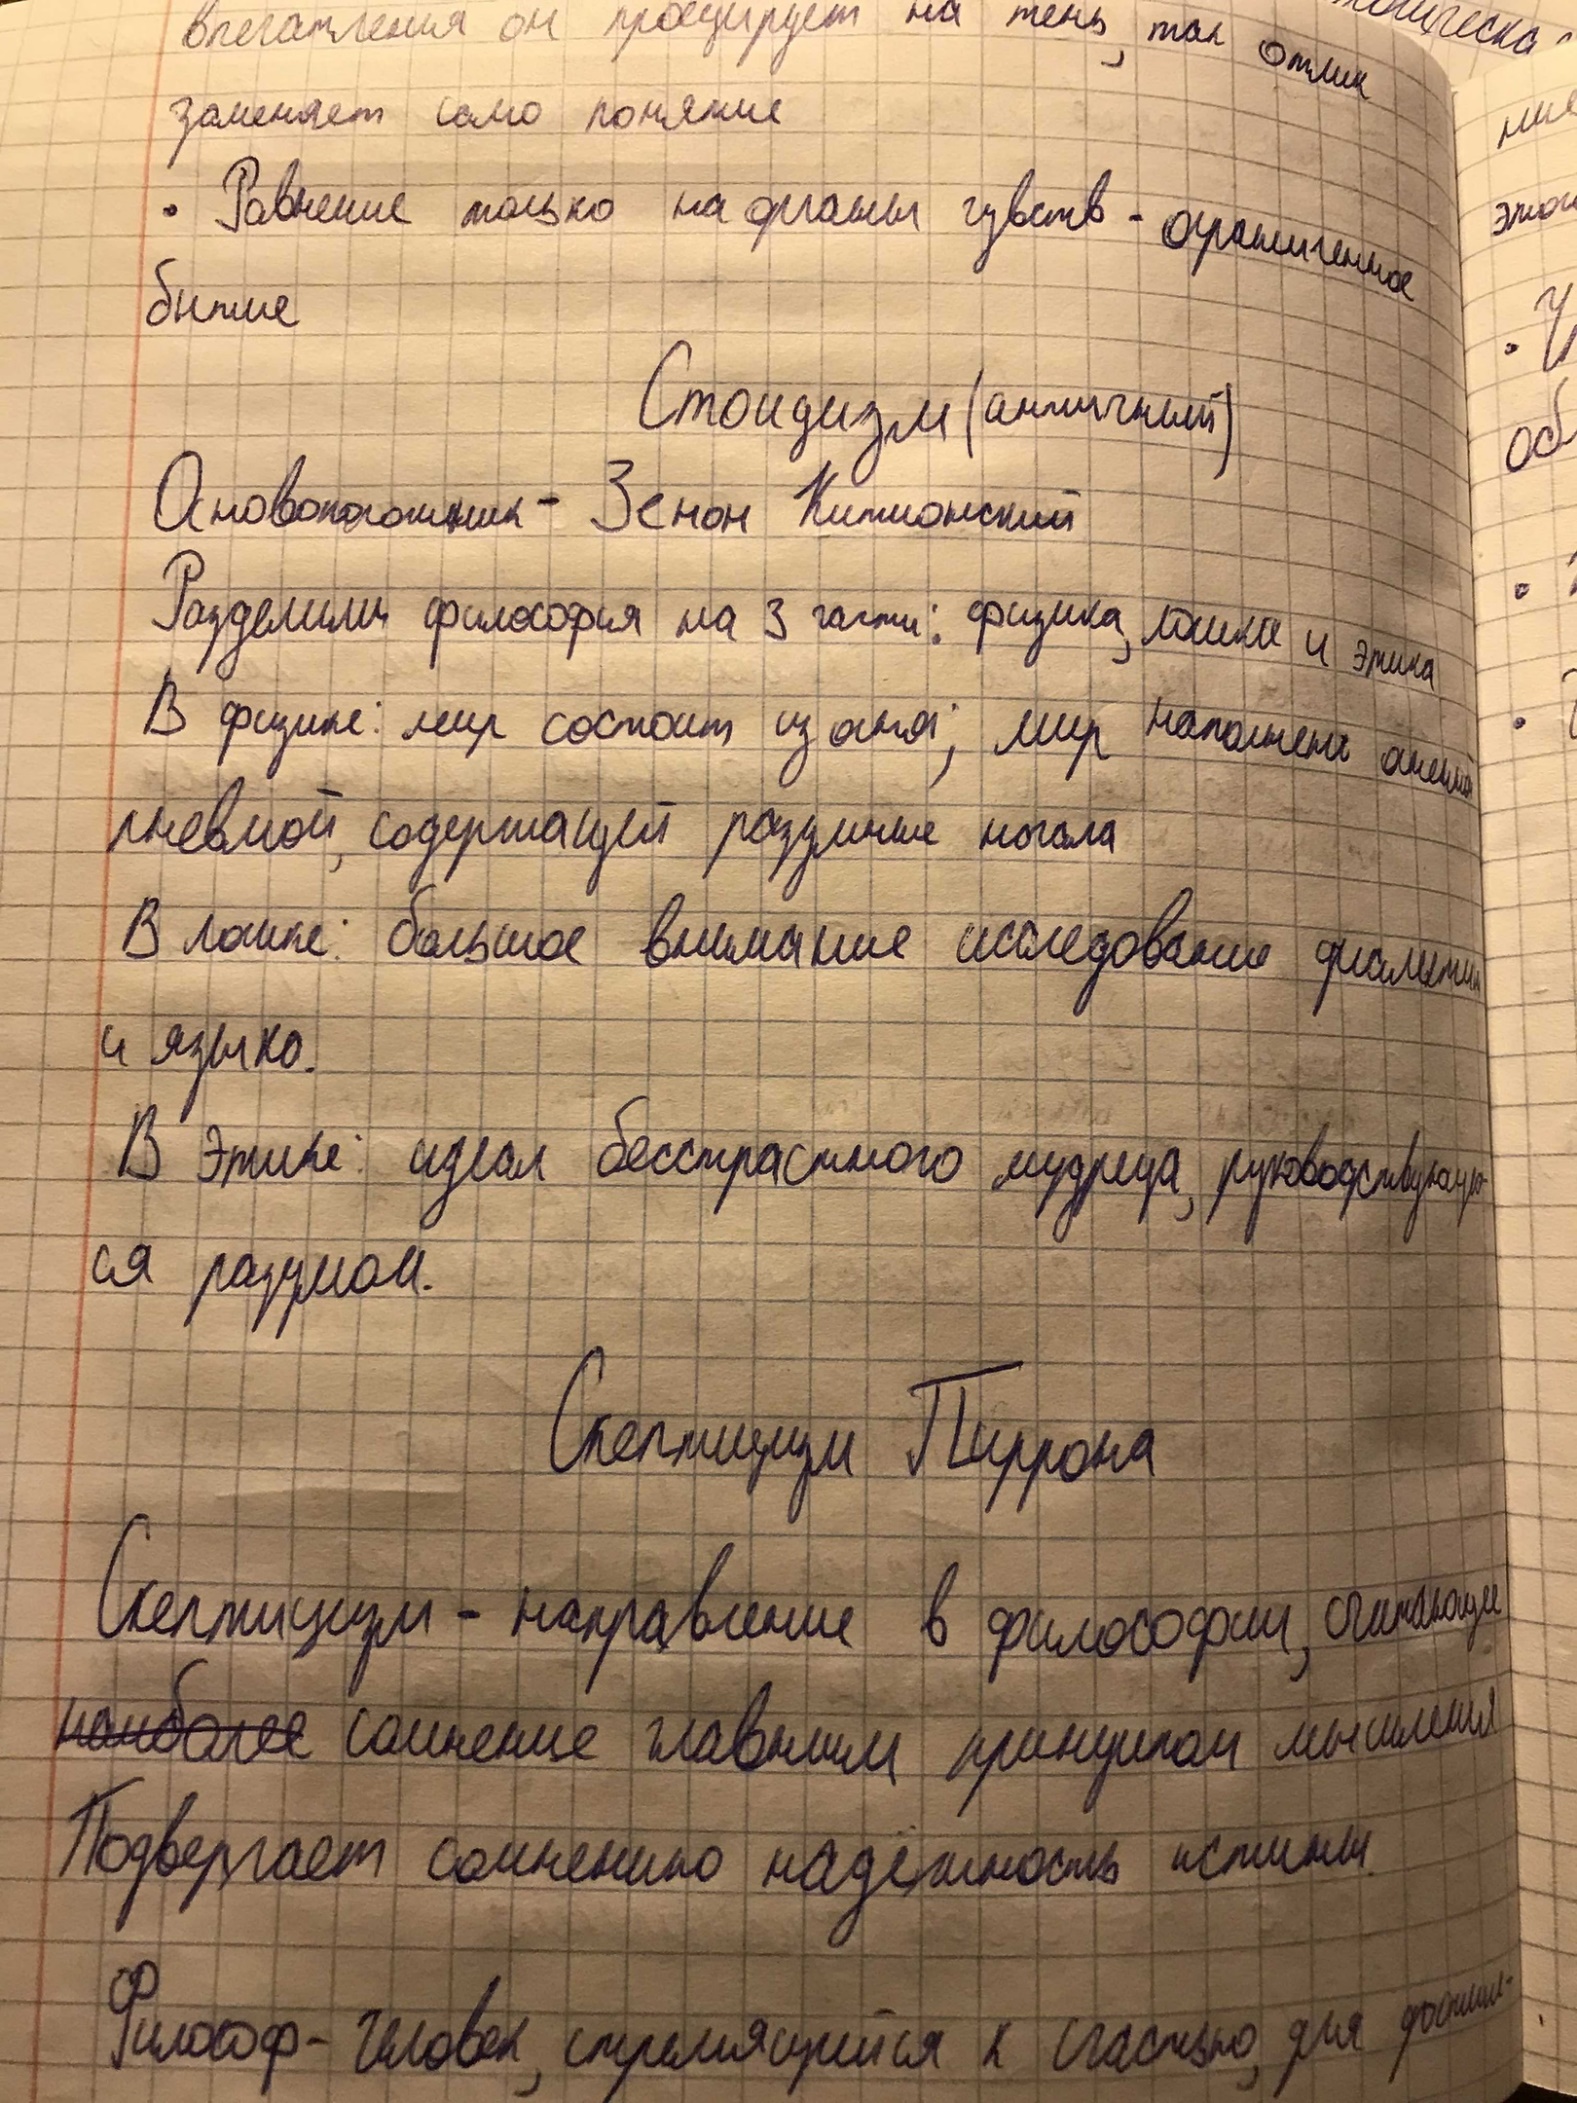 впечатления он проецирует на тень, так отлик
заменяет само понятие
• Равнение только на органы чувств - ограниченное
бытие
Стоидизм (античный)
Основоположник - Зенон Китионский
Разделили философия на 3 части: физика, логика и этика
В физике: мир состоит из огня; мир наполнен огненной
пневмой, содержащей разумные начала
В логике: большое внимание исследование диалектики
и языка.
В этике: идеал бесстрастного мудреца, руководствующего-
ся разумом.
Скептицизм Пиррона
Скептицизм - направление в философии, считающее
наиболее сомнение главным принципом мышления
Подвергает сомнению надёжность истины.
Философ - человек, стремящийся к счастью, для